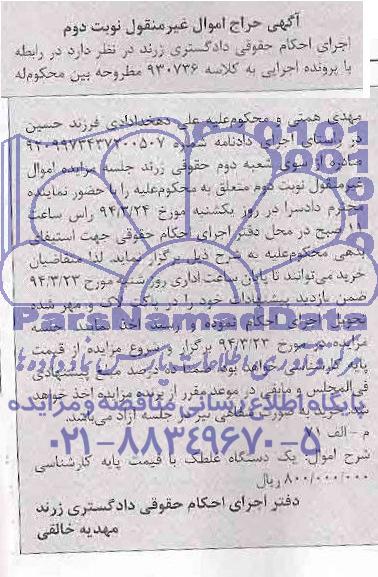 آگهی حراج اموال غیرمنقول نوبت دوم
اجرای احکام حقوقی دادگستری زرند در نظر دارد در رابطه
با پرونده اجرایی به کلاسه ۹۳۰۷۳۶ مطروحه بین محکوم‌له
مهدی همتی و محکوم‌علیه علی دهخدادادی فرزند حسین
در راستای اجرای دادنامه شماره ۹۲۰۹۹۷۳۴۳۷۲۰۰۵۰۷
صادره از سوی شعبه دوم حقوقی زرند جلسه مزایده اموال
غیرمنقول نوبت دوم متعلق به محکوم‌علیه را با حضور نماینده
محترم دادسرا در روز یکشنبه مورخ ۹۴/۳/۲۴ راس ساعت
۱۱ صبح در محل دفتر اجرای احکام حقوقی جهت استیفای
بدهی محکوم‌علیه به شرح ذیل برگزار نماید. لذا متقاضیان
خرید می‌توانند تا پایان ساعت اداری روز شنبه مورخ ۹۴/۳/۲۳
ضمن بازدید پیشنهادات خود را در پاکت لاک و مهر شده
تحویل اجرای احکام نموده و رسید اخذ نمایند. جلسه
مزایده در مورخ ۹۴/۳/۲۳ برگزار و شروع مزایده از قیمت
پایه کارشناسی خواهد بود. ضمناً ده درصد مبلغ پیشنهادی
فی‌المجلس و مابقی در موعد مقرر از برنده مزایده اخذ خواهد
شد. خرید به صورت شفاهی نیز در جلسه آزاد می‌باشد.
م - الف ۷۱
شرح اموال: یک دستگاه غلطک با قیمت پایه کارشناسی
۸۰۰/۰۰۰/۰۰۰ ریال
دفتر اجرای احکام حقوقی دادگستری زرند
مهدیه خالقی
ParsNamadData
پایگاه اطلاع رسانی مناقصه و مزایده
۰۲۱-۸۸۳۴۹۶۷۰-۵